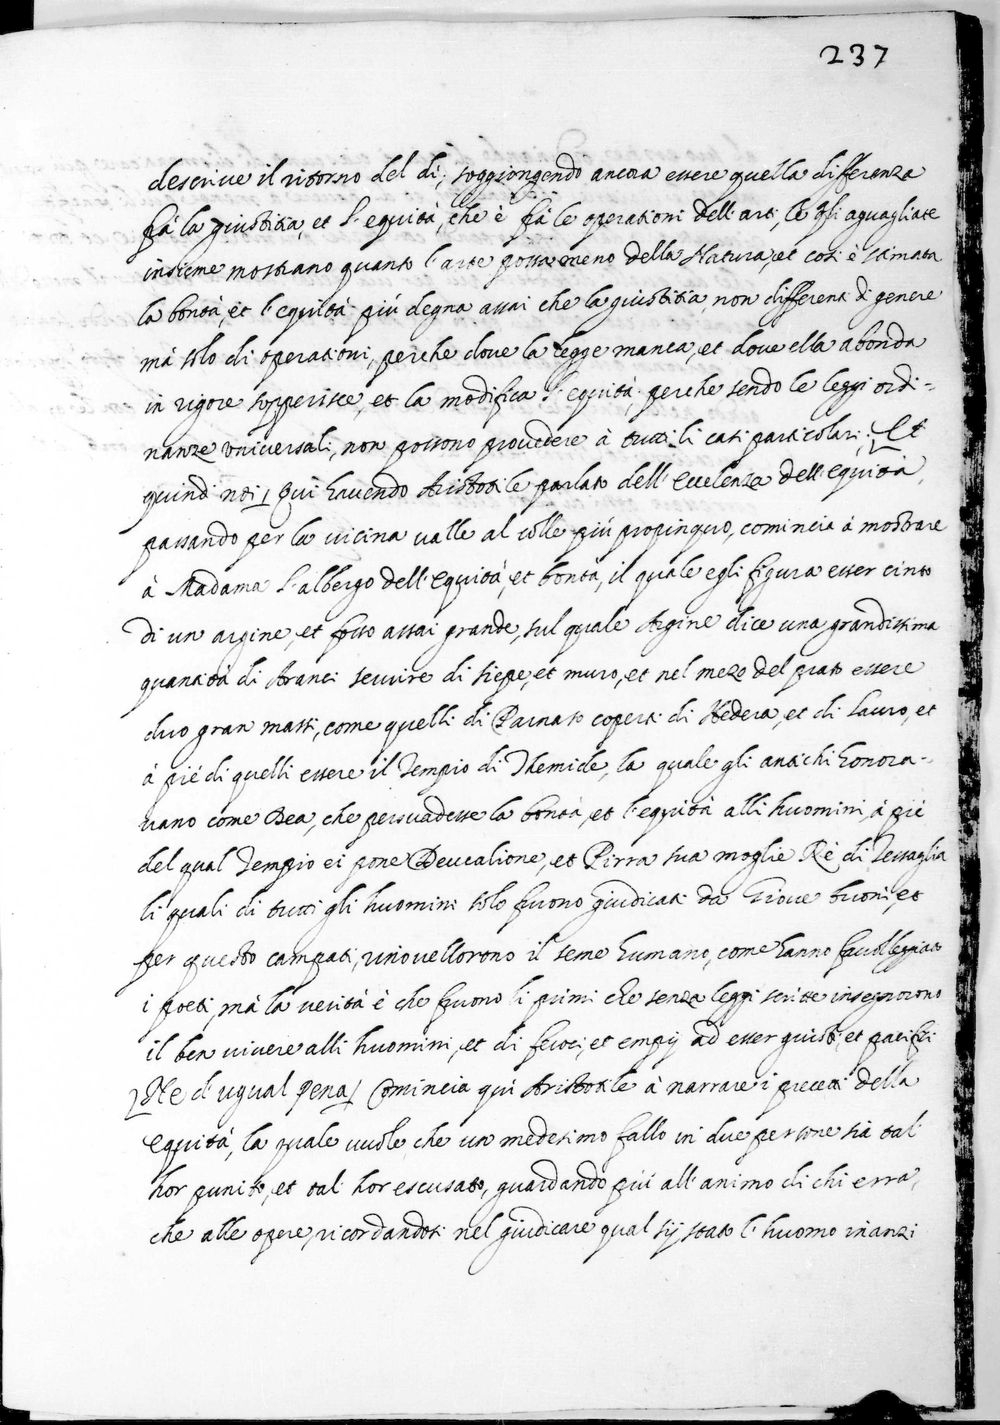 237
descriue il ritorno del dì, soggiongendo ancora essere quella differenza
frà la giustitia, et l'equità, che è frà le operationi dell'arti, le qli aguagliate
insieme mostrano quanto l'arte possa meno della Natura, et così è stimata
la bontà, et l'equità più degna assai che la giustitia, non differenti di genere
mà solo di operationi, perche doue la legge manca, et doue ella abonda
in rigore sopperisce, et la modifica l'equità, perche sendo le leggi ordi=
nanze vniversali, non possono prouedere à tutti li casi particolari, Et
quindi noi Qui hauendo Aristotile parlato dell'eccelenza dell'equità,
passando per la vicina ualle al colle più propinquo, comincia à mostrare
à Madama l'albergo dell'equità, et bontà, il quale egli figura esser cinto
di un argine, et fosso assai grande, sul quale Argine dice una grandissima
quantità di Aranci seruire di siepe, et muro, et nel mezo del prato essere
duo gran massi, come quelli di Parnaso coperti di Hedera, et di lauro, et
à piè di quelli essere il Tempio di Themide, la quale gli antichi honora=
uano come Dea, che persuadesse la bontà, et l'equità alli huomini, à piè
del qual Tempio ei pone Deucalione, et Pirra sua moglie Rè di Tessaglia
li quali di tutti gli huomini solo furono giudicati da Gioue buoni, et
per questo campati, rinouellorono il seme humano, come hanno fauolleggiato
i poeti, mà la uerità è che furono li primi che senza leggi scritte insegnorono
il ben uiuere alli huomini, et di feroci, et empij ad esser giusti, et pacifici
Ne d'ugual pena Comincia qui Aristotile à narrare i precetti della
equità, la quale uuole che un medesimo fallo in due persone sia tal'
hor punito, et tal'hor escusato, guardando più all'animo di chi erra,
che alle opere, ricordandosi nel giudicare qual sij stato l'huomo inanzi